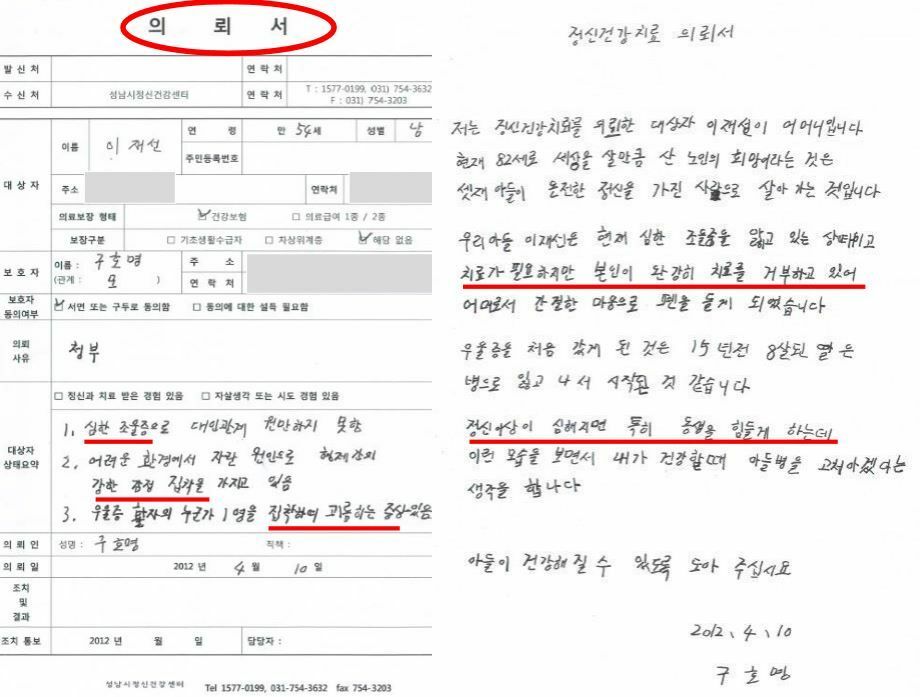 의 뢰 서
발 신 처 연 락 처
수 신 처 성남시정신건강센터 연 락 처 T : 1577-0199, 031) 754-3632
F : 031) 754-3203
대 상 자
이름 이재선 연 령 만 54세 성별 남
주민등록번호
주소 연락처
의료보장 형태 ☑ 건강보험 □ 의료급여 1종 / 2종
보장구분 □ 기초생활수급자 □ 차상위계층 ☑ 해당 없음
보 호 자 이름 : 구호명 주 소
(관계 : 모 ) 연 락 처
보호자 동의여부 ☑ 서면 또는 구두로 동의함 □ 동의에 대한 설득 필요함
의뢰 사유 첨부
대상자 상태요약
□ 정신과 치료 받은 경험 있음 □ 자살생각 또는 시도 경험 있음
1. 심한 조울증으로 대인관계 원만하지 못함
2. 어려운 환경에서 자란 원인으로 형제간의
강한 집착을 가지고 있음
3. 우울증 환자의 누군가 1명을 집착하여 괴롭히는 증상있음
의 뢰 인 성명 : 구호명 직책 :
의 뢰 일 2012 년 4 월 10 일
조치 및 결과
조치 통보 2012 년 월 일 담당자 :
성남시정신건강센터 Tel 1577-0199, 031-754-3632 fax 754-3203
정신건강치료 의뢰서
저는 정신건강치료를 의뢰한 대상자 이재선이 어머니입니다
현재 82세로 세상을 살만큼 산 노인의 희망이라는 것은
셋째 아들이 온전한 정신을 가진 사람으로 살아 가는 것입니다
우리아들 이재선은 현재 심한 조울증을 앓고 있는 상태이고
치료가 필요하지만 본인이 완강히 치료를 거부하고 있어
어머로서 간절한 마음으로 펜을 들게 되었습니다
우울증을 처음 갖게 된 것은 15년전 8살된 딸은
병으로 잃고 나서 시작된 것 같습니다
정신이상이 심해지면 특히 동생을 힘들게 하는데
이런 모습을 보면서 내가 건강할때 아들병을 고쳐야겠다는
생각을 합니다
아들이 건강해질 수 있도록 도와 주십시요
2012. 4. 10
구호명